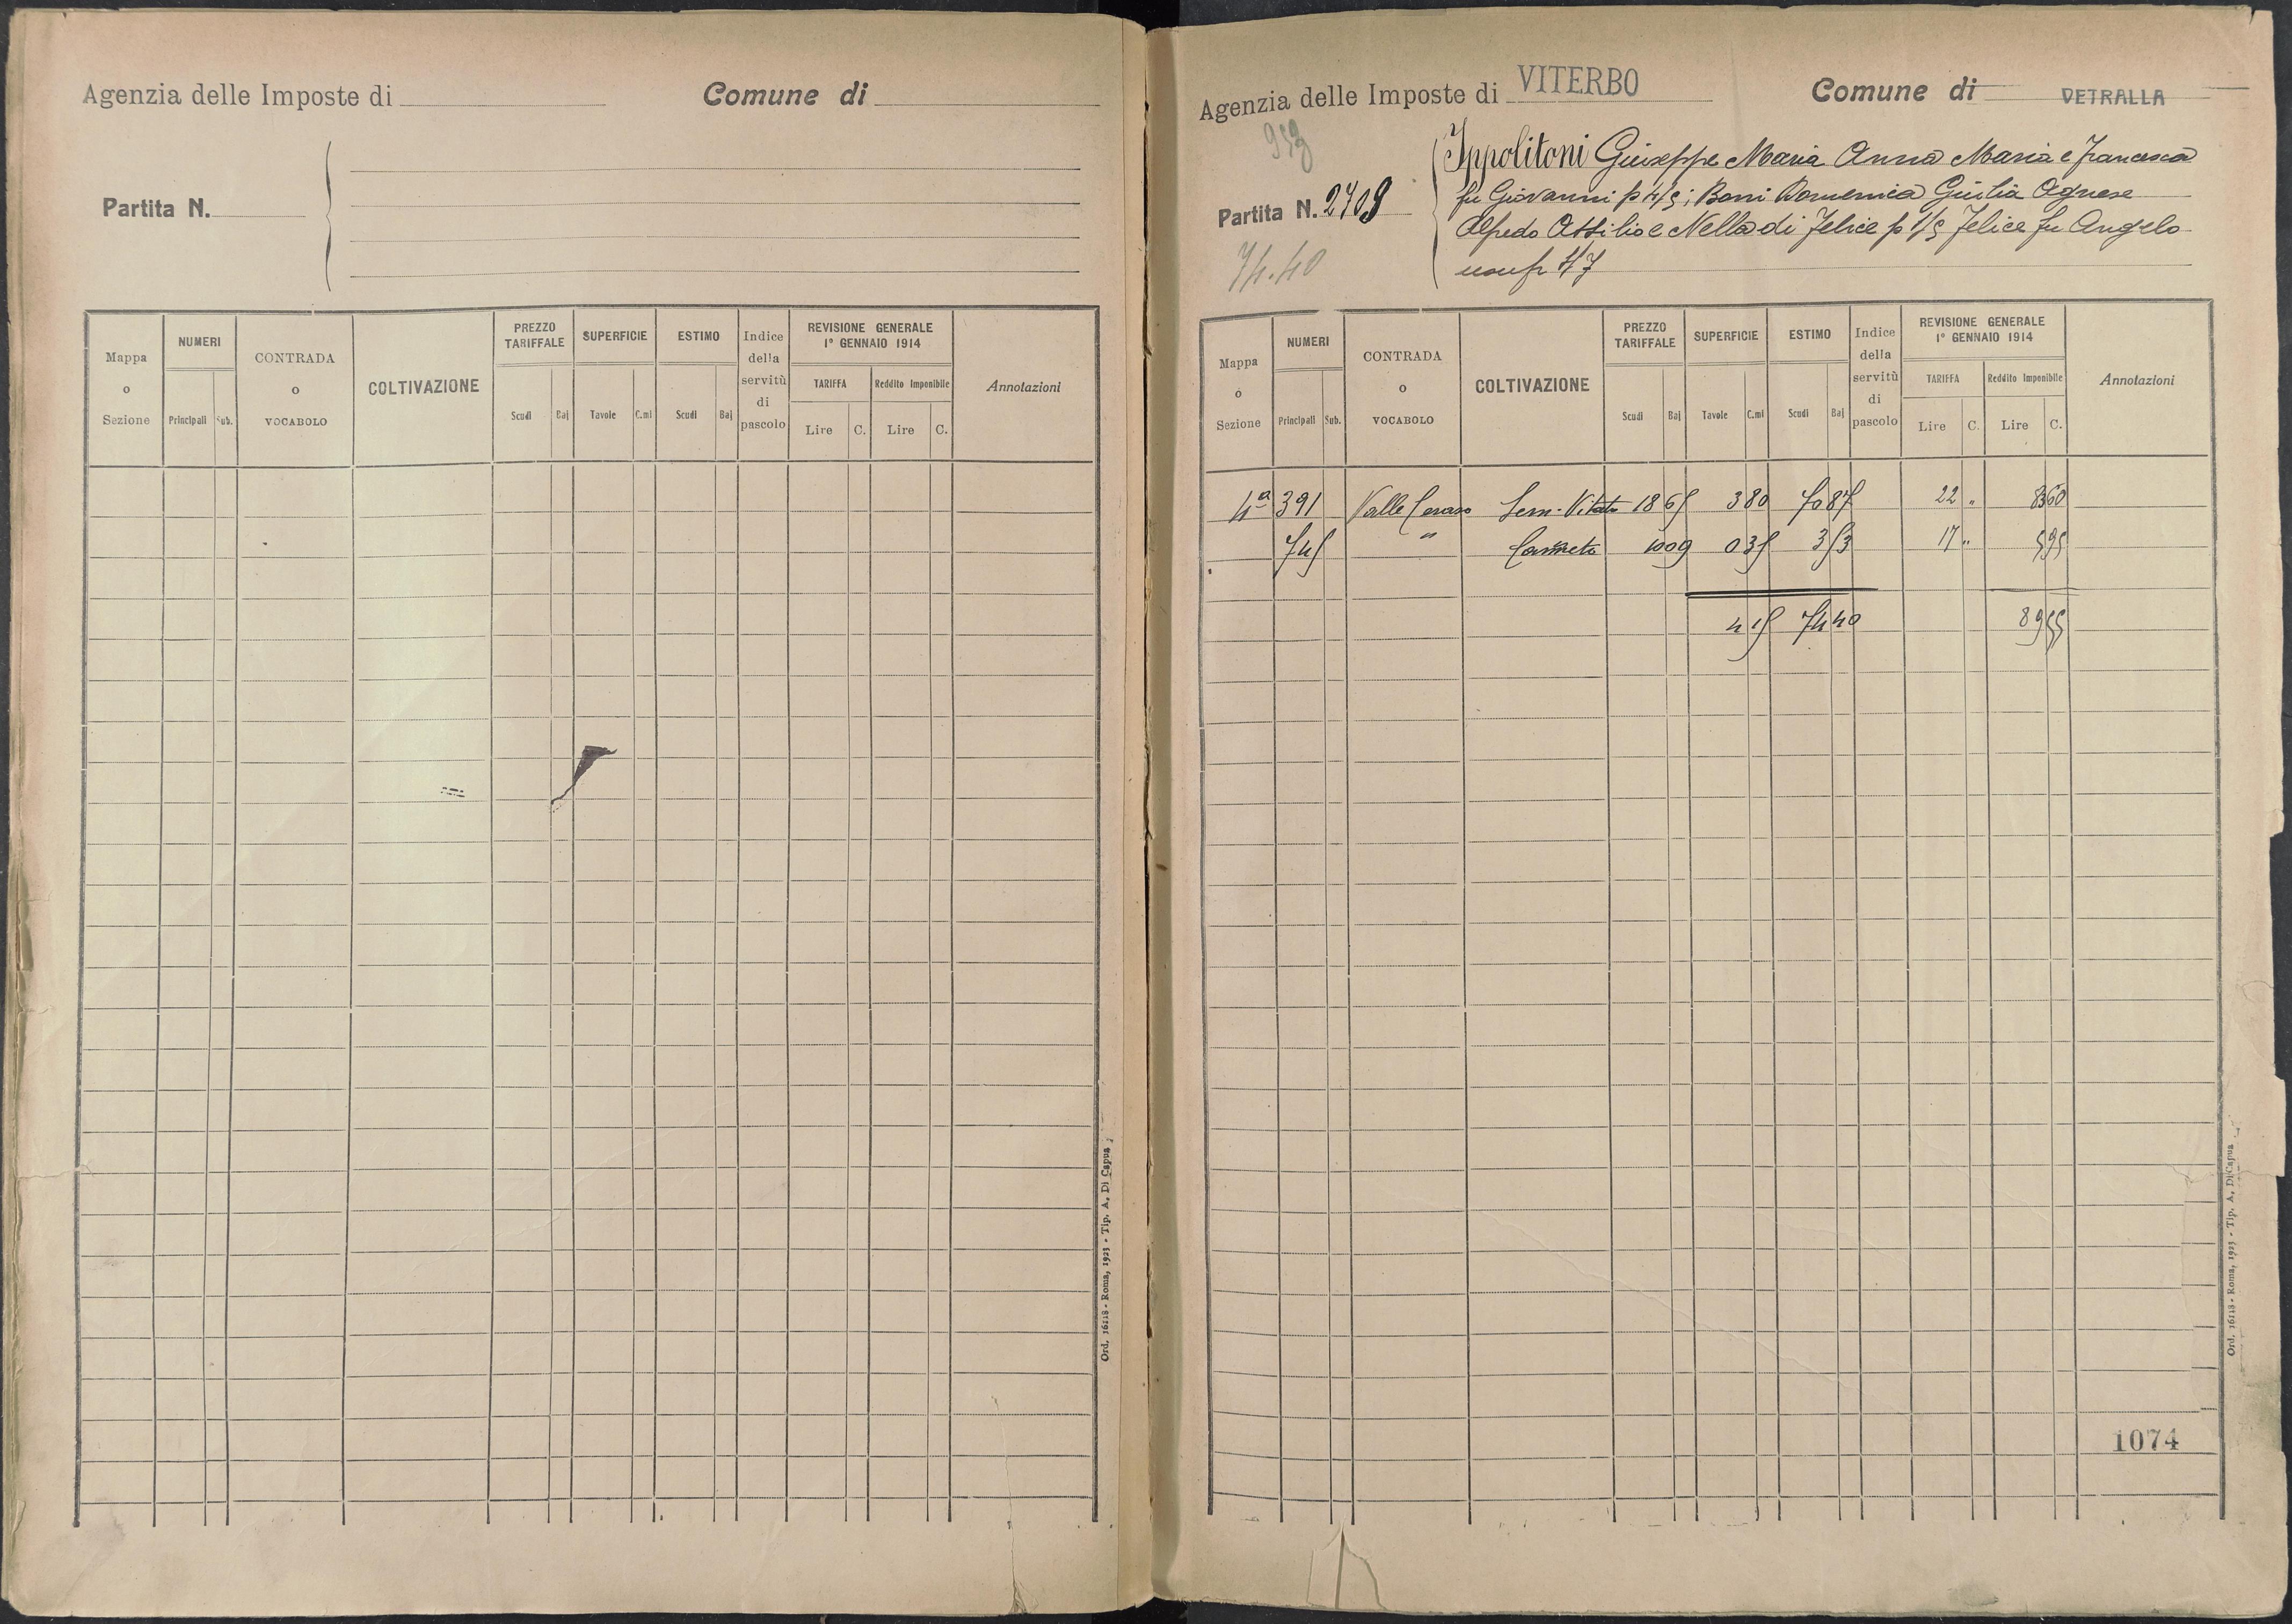 Agenzia delle Imposte di
Comune di
Partita N.
Mappa o Sezione
NUMERI
Principali
Sub.
CONTRADA o VOCABOLO
COLTIVAZIONE
PREZZO TARIFFALE
Scudi
Baj
SUPERFICIE
Tavole
C.mi
ESTIMO
Scudi
Baj
Indice della servitù di pascolo
REVISIONE GENERALE
1° GENNAIO 1914
TARIFFA
Lire
C.
Reddito Imponibile
Lire
C.
Annotazioni
Ord. 16118 - Roma, 1923 - Tip. A. Di Capua
Agenzia delle Imposte di VITERBO
Comune di VETRALLA
Partita N. 2709
74.40
Ippolitoni Giuseppe Maria Anna Maria e Francesca
fu Giovanni p 4/5; Boni Domenica Giulia Agnese
Alfredo Attilio e Nella di Felice p 1/5 Felice fu Angelo
usufr
Mappa o Sezione
NUMERI
Principali
Sub.
CONTRADA o VOCABOLO
COLTIVAZIONE
PREZZO TARIFFALE
Scudi
Baj
SUPERFICIE
Tavole
C.mi
ESTIMO
Scudi
Baj
Indice della servitù di pascolo
REVISIONE GENERALE
1° GENNAIO 1914
TARIFFA
Lire
C.
Reddito Imponibile
Lire
C.
Annotazioni
4ª 391 Valle Ceraso Sem. Vitato 18 65 3 80 70 87 22 " 83 60
745 " Canneto 10 09 0 35 3 53 17 " 5 95
4 15 74 40 89 55
1074
Ord. 16118 - Roma, 1923 - Tip. A. Di Capua